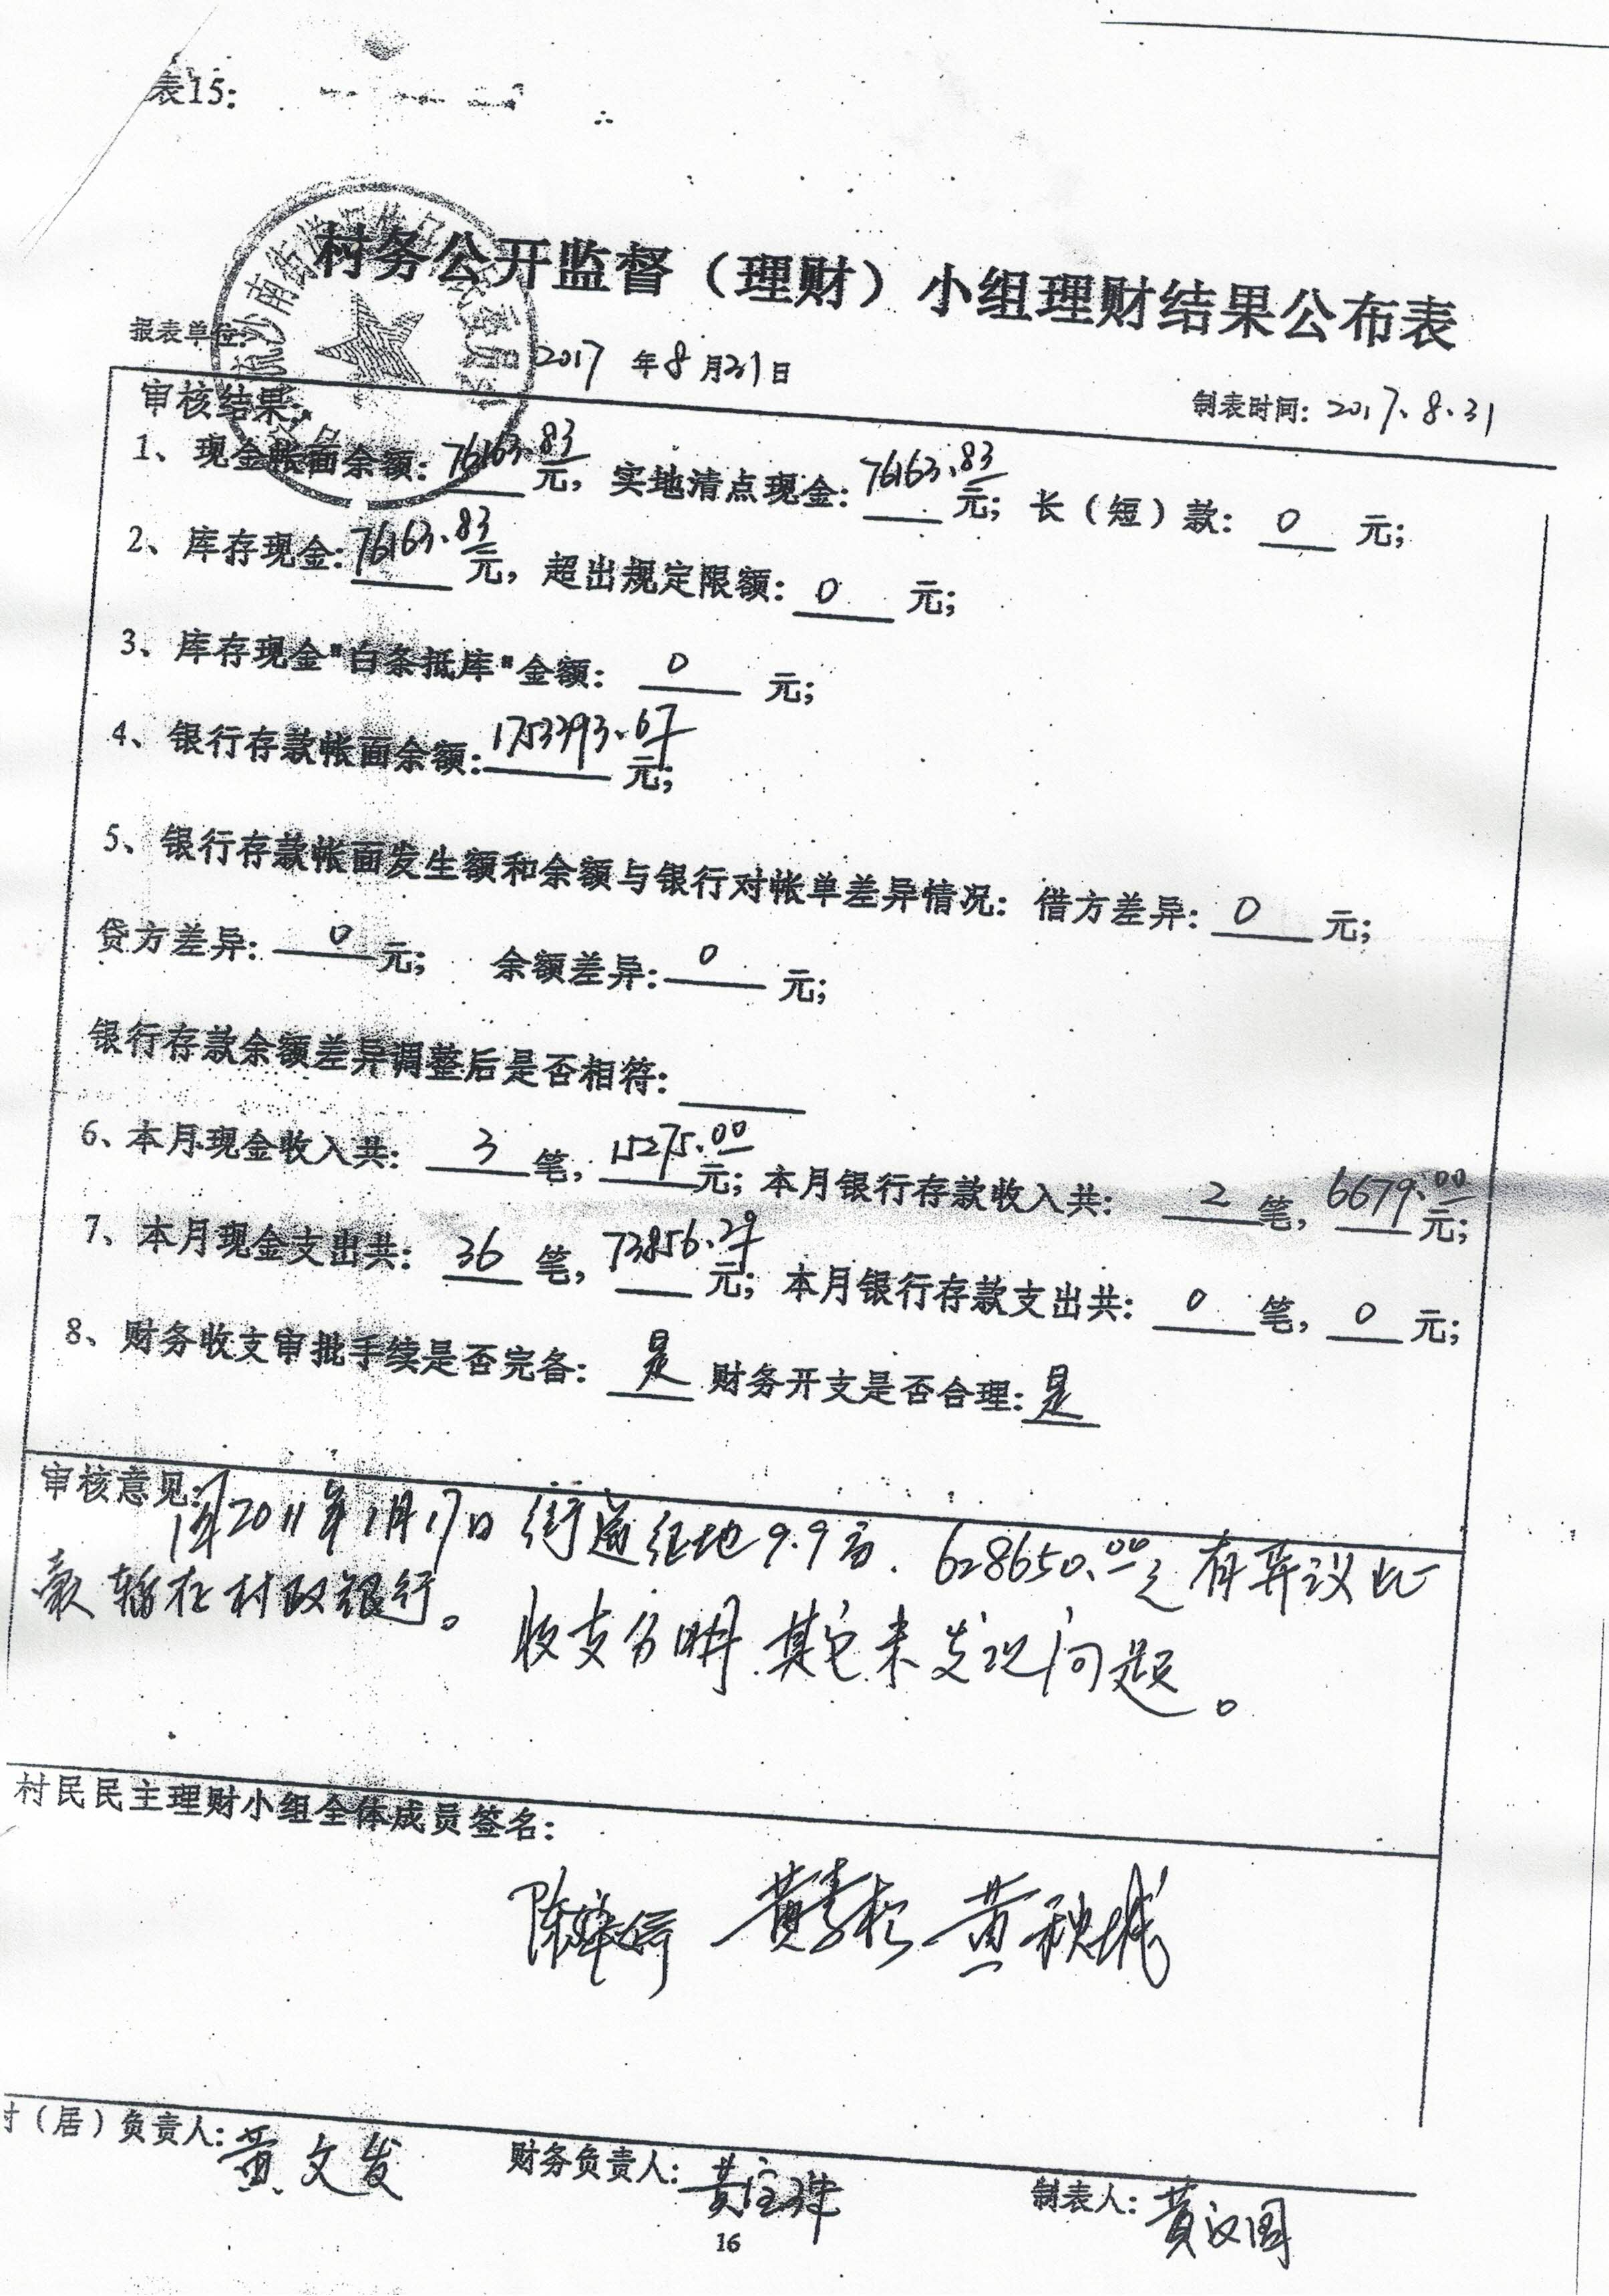 表15:
村务公开监督（理财）小组理财结果公布表
报表单位: 2017 年 8 月 31 日 制表时间: 2017.8.31
审核结果:
1、现金帐面余额: 76163.83 元, 实地清点现金: 76163.83 元; 长（短）款: 0 元;
2、库存现金: 76163.83 元, 超出规定限额: 0 元;
3、库存现金"白条抵库"金额: 0 元;
4、银行存款帐面余额: 1753393.67 元;
5、银行存款帐面发生额和余额与银行对帐单差异情况: 借方差异: 0 元;
贷方差异: 0 元; 余额差异: 0 元;
银行存款余额差异调整后是否相符:
6、本月现金收入共: 3 笔, 15275.00 元; 本月银行存款收入共: 2 笔, 6679.00 元;
7、本月现金支出共: 36 笔, 73856.29 元; 本月银行存款支出共: 0 笔, 0 元;
8、财务收支审批手续是否完备: 是 财务开支是否合理: 是
审核意见:
2011年1月17日 街道征地9.9亩. 628650.00元有异议此
款暂在村政银行。 收支分明.其它未发现问题。
村民民主理财小组全体成员签名:
陈 黄 黄秋城
（居）负责人: 黄文发 财务负责人: 黄 制表人: 黄汉国
16